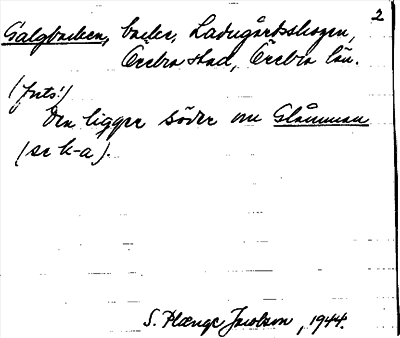 2
Galgbacken, backe, Ladugårdsskogen,
Örebro stad, Örebro län.
(forts.)
Den ligger söder om Glömman
(se k-a).
S. Plænge Jacobson, 1944.